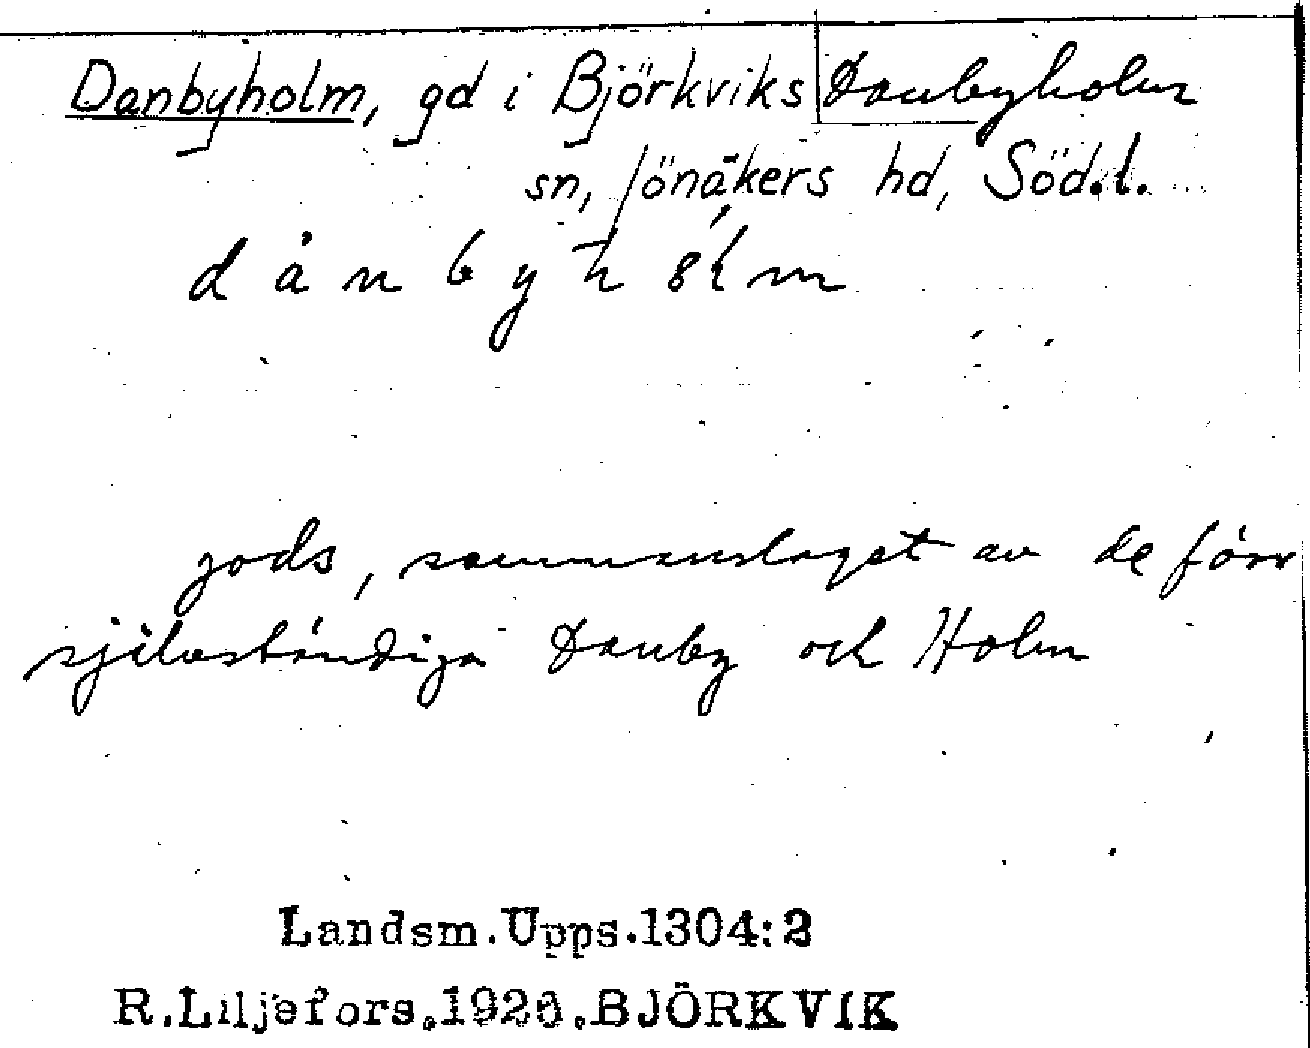 Danbyholm, gd i Björkviks Danbyholm
sn, Jönåkers hd, Söd.l.
gods, sammanslaget av de förr
självständiga Danby och Holm
Landsm.Upps.1304:2
R.Liljefors.1926.BJÖRKVIK